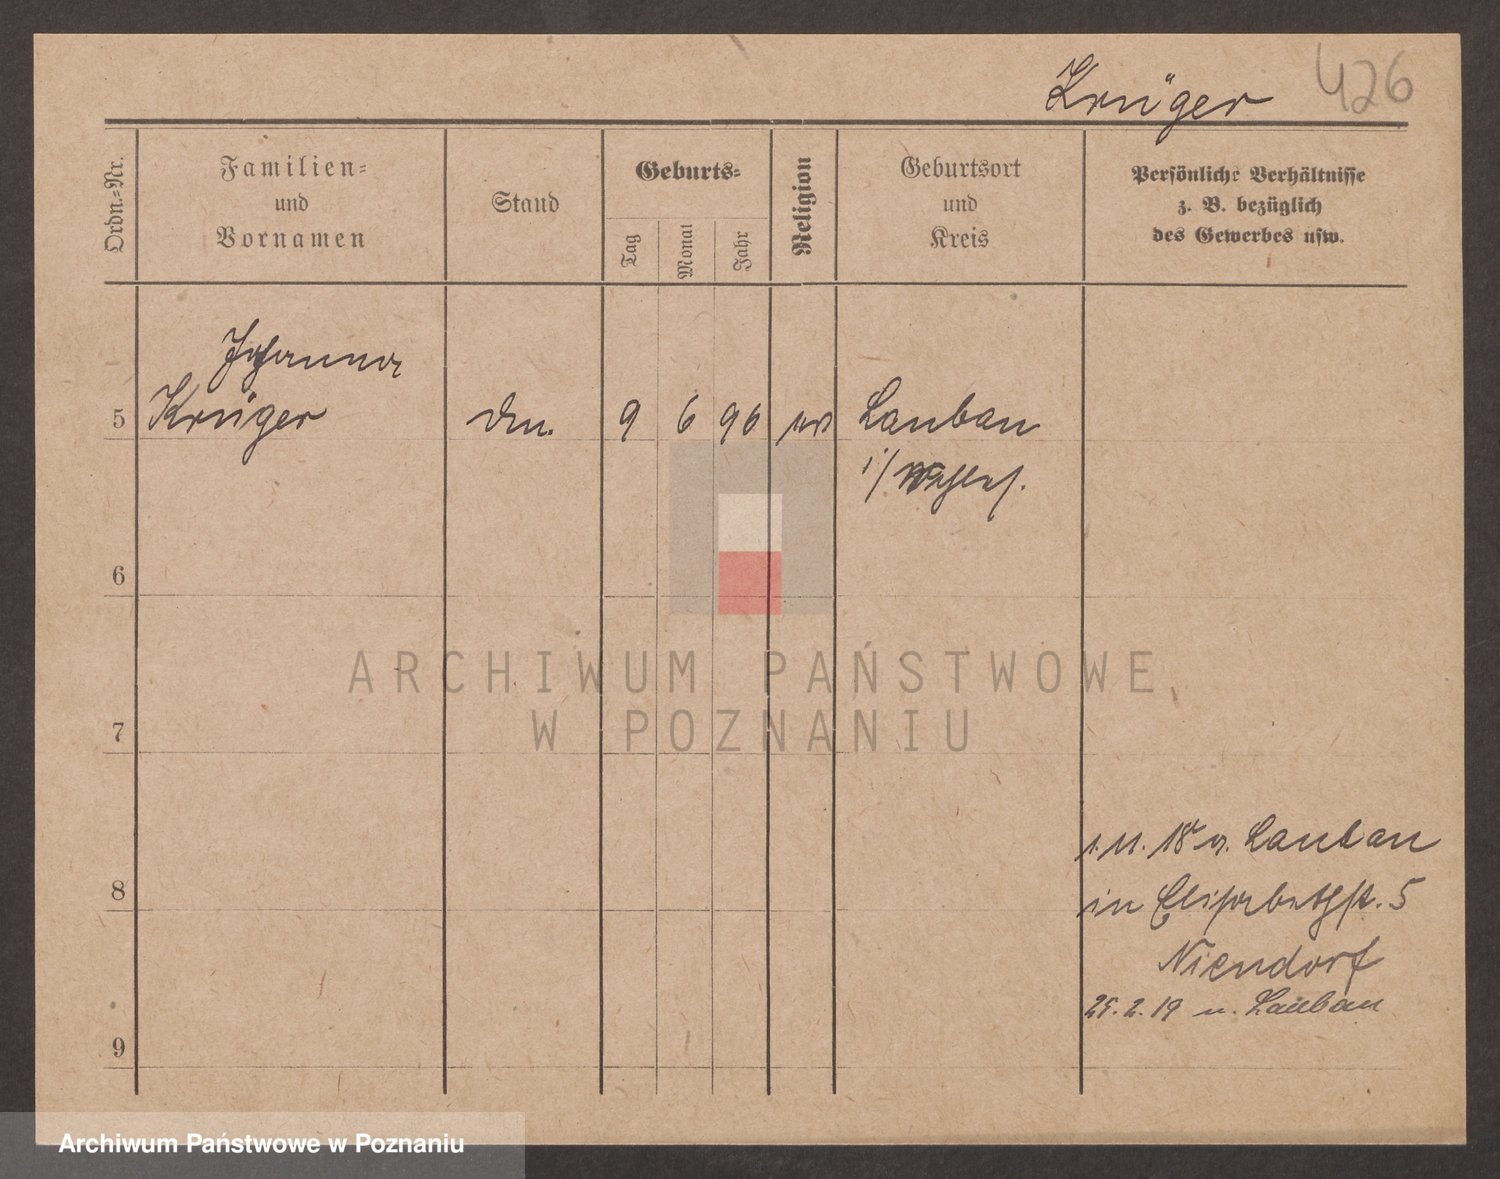 Krüger 426
Ordn.-Nr.
Familien-
und
Vornamen
Stand
Geburts-
Tag
Monat
Jahr
Religion
Geburtsort
und
Kreis
Persönliche Verhältnisse
z. B. bezüglich
des Gewerbes usw.
Johanna
5 Krüger 9 6 96 Lauban
i/ Schles.
6
7
8
9
1. 11. 18 v. Lauban
in Elisabethst. 5
Niendorf
25. 2. 19 n. Lauban
ARCHIWUM PAŃSTWOWE
W POZNANIU
Archiwum Państwowe w Poznaniu